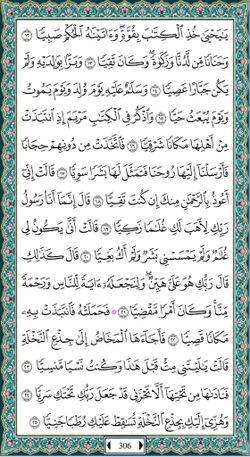 يَٰيَحْيَىٰ خُذِ ٱلْكِتَٰبَ بِقُوَّةٍۖ وَءَاتَيْنَٰهُ ٱلْحُكْمَ صَبِيًّا ١٢
وَحَنَانًا مِّن لَّدُنَّا وَزَكَوٰةًۖ وَكَانَ تَقِيًّا ١٣ وَبَرًّۢا بِوَٰلِدَيْهِ وَلَمْ
يَكُن جَبَّارًا عَصِيًّا ١٤ وَسَلَٰمٌ عَلَيْهِ يَوْمَ وُلِدَ وَيَوْمَ يَمُوتُ
وَيَوْمَ يُبْعَثُ حَيًّا ١٥ وَٱذْكُرْ فِى ٱلْكِتَٰبِ مَرْيَمَ إِذِ ٱنتَبَذَتْ
مِنْ أَهْلِهَا مَكَانًا شَرْقِيًّا ١٦ فَٱتَّخَذَتْ مِن دُونِهِمْ حِجَابًا
فَأَرْسَلْنَآ إِلَيْهَا رُوحَنَا فَتَمَثَّلَ لَهَا بَشَرًا سَوِيًّا ١٧ قَالَتْ إِنِّىٓ
أَعُوذُ بِٱلرَّحْمَٰنِ مِنكَ إِن كُنتَ تَقِيًّا ١٨ قَالَ إِنَّمَآ أَنَا۠ رَسُولُ
رَبِّكِ لِأَهَبَ لَكِ غُلَٰمًا زَكِيًّا ١٩ قَالَتْ أَنَّىٰ يَكُونُ لِى
غُلَٰمٌ وَلَمْ يَمْسَسْنِى بَشَرٌ وَلَمْ أَكُ بَغِيًّا ٢٠ قَالَ كَذَٰلِكِ
قَالَ رَبُّكِ هُوَ عَلَىَّ هَيِّنٌۖ وَلِنَجْعَلَهُۥٓ ءَايَةً لِّلنَّاسِ وَرَحْمَةً
مِّنَّاۚ وَكَانَ أَمْرًا مَّقْضِيًّا ٢١ فَحَمَلَتْهُ فَٱنتَبَذَتْ بِهِۦ
مَكَانًا قَصِيًّا ٢٢ فَأَجَآءَهَا ٱلْمَخَاضُ إِلَىٰ جِذْعِ ٱلنَّخْلَةِ
قَالَتْ يَٰلَيْتَنِى مِتُّ قَبْلَ هَٰذَا وَكُنتُ نَسْيًا مَّنسِيًّا ٢٣
فَنَادَىٰهَا مِن تَحْتِهَآ أَلَّا تَحْزَنِى قَدْ جَعَلَ رَبُّكِ تَحْتَكِ سَرِيًّا ٢٤
وَهُزِّىٓ إِلَيْكِ بِجِذْعِ ٱلنَّخْلَةِ تُسَٰقِطْ عَلَيْكِ رُطَبًا جَنِيًّا ٢٥
306